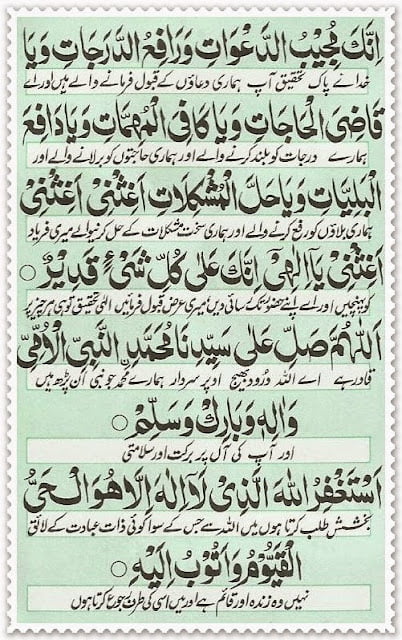 اِنَّكَ مُجِيْبُ الدَّعْوَاتِ وَرَافِعُ الدَّرَجَاتِ وَيَا
خدائے پاک تحقیق آپ ہماری دعاؤں کے قبول فرمانے والے ہیں اور اے
قَاضِيَ الْحَاجَاتِ وَيَا كَافِيَ الْمُهِمَّاتِ وَيَا دَافِعَ
ہمارے درجات کو بلند کرنے والے اور ہماری حاجتوں کو بر لانے والے اور
الْبَلِيَّاتِ وَيَا حَلَّ الْمُشْكِلَاتِ اَغِثْنِيْ اَغِثْنِيْ
ہماری بلاؤں کو رفع کرنے والے اور ہماری سخت مشکلات کے حل کرنیوالے میری فریاد
اَغِثْنِيْ يَآ اِلٰهِيْ اِنَّكَ عَلٰى كُلِّ شَيْءٍ قَدِيْرٌ ○
کو پہنچیں اور اے اپنے حضور تک رسائی دیں میری عرض قبول فرمائیں الٰہی تحقیق تو ہی ہر چیز پر
اَللّٰهُمَّ صَلِّ عَلٰى سَيِّدِنَا مُحَمَّدِ النَّبِيِّ الْاُمِّيِّ
قادر ہے اے اللہ درود بھیج اوپر سردار ہمارے محمدؐ جو نبی اَن پڑھ ہیں
وَاٰلِهٖ وَبَارِكْ وَسَلِّمْ ○
اور آپ کی آل پر برکت اور سلامتی
اَسْتَغْفِرُ اللهَ الَّذِيْ لَآ اِلٰهَ اِلَّا هُوَ الْحَيُّ
بخشش طلب کرتا ہوں میں اللہ سے جس کے سوا کوئی ذات عبادت کے لائق
الْقَيُّوْمُ وَاَتُوْبُ اِلَيْهِ ○
نہیں وہ زندہ اور قائم ہے اور میں اسی کی طرف رجوع کرتا ہوں